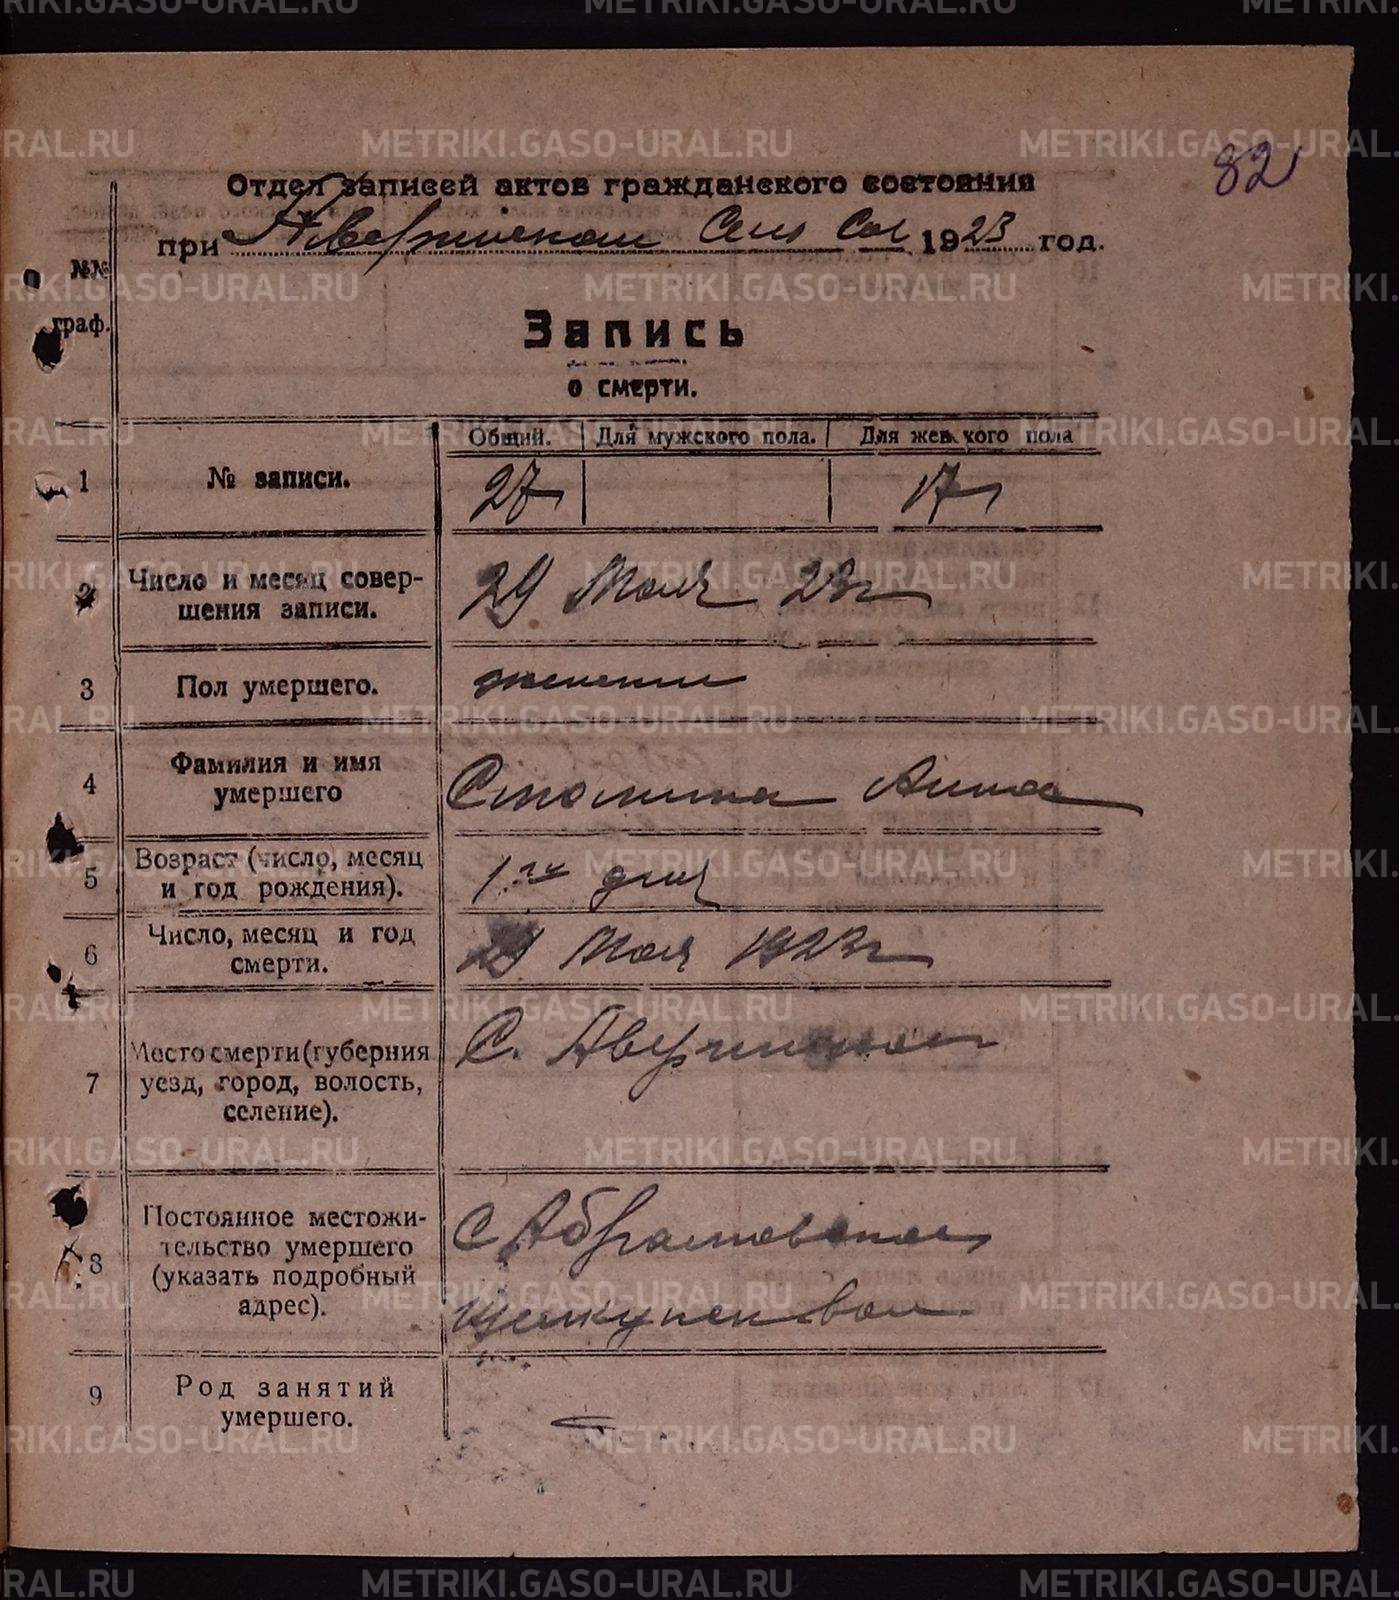 82
Отдел записей актов гражданского состояния
при Аверинском Сель Сов 1923 год.
№№ граф.
Запись
о смерти.
Общий. Для мужского пола. Для женского пола
1 № записи. 27 17
2 Число и месяц совершения записи. 29 Мая 23г
3 Пол умершего. женский
4 Фамилия и имя умершего Стомина Анна
5 Возраст (число, месяц и год рождения). 1 дня
6 Число, месяц и год смерти. 29 Мая 1923г
7 Место смерти (губерния уезд, город, волость, селение). С. Аверинское
8 Постоянное местожительство умершего (указать подробный адрес). С Абрамовское
вол
9 Род занятий умершего. —
METRIKI.GASO-URAL.RU